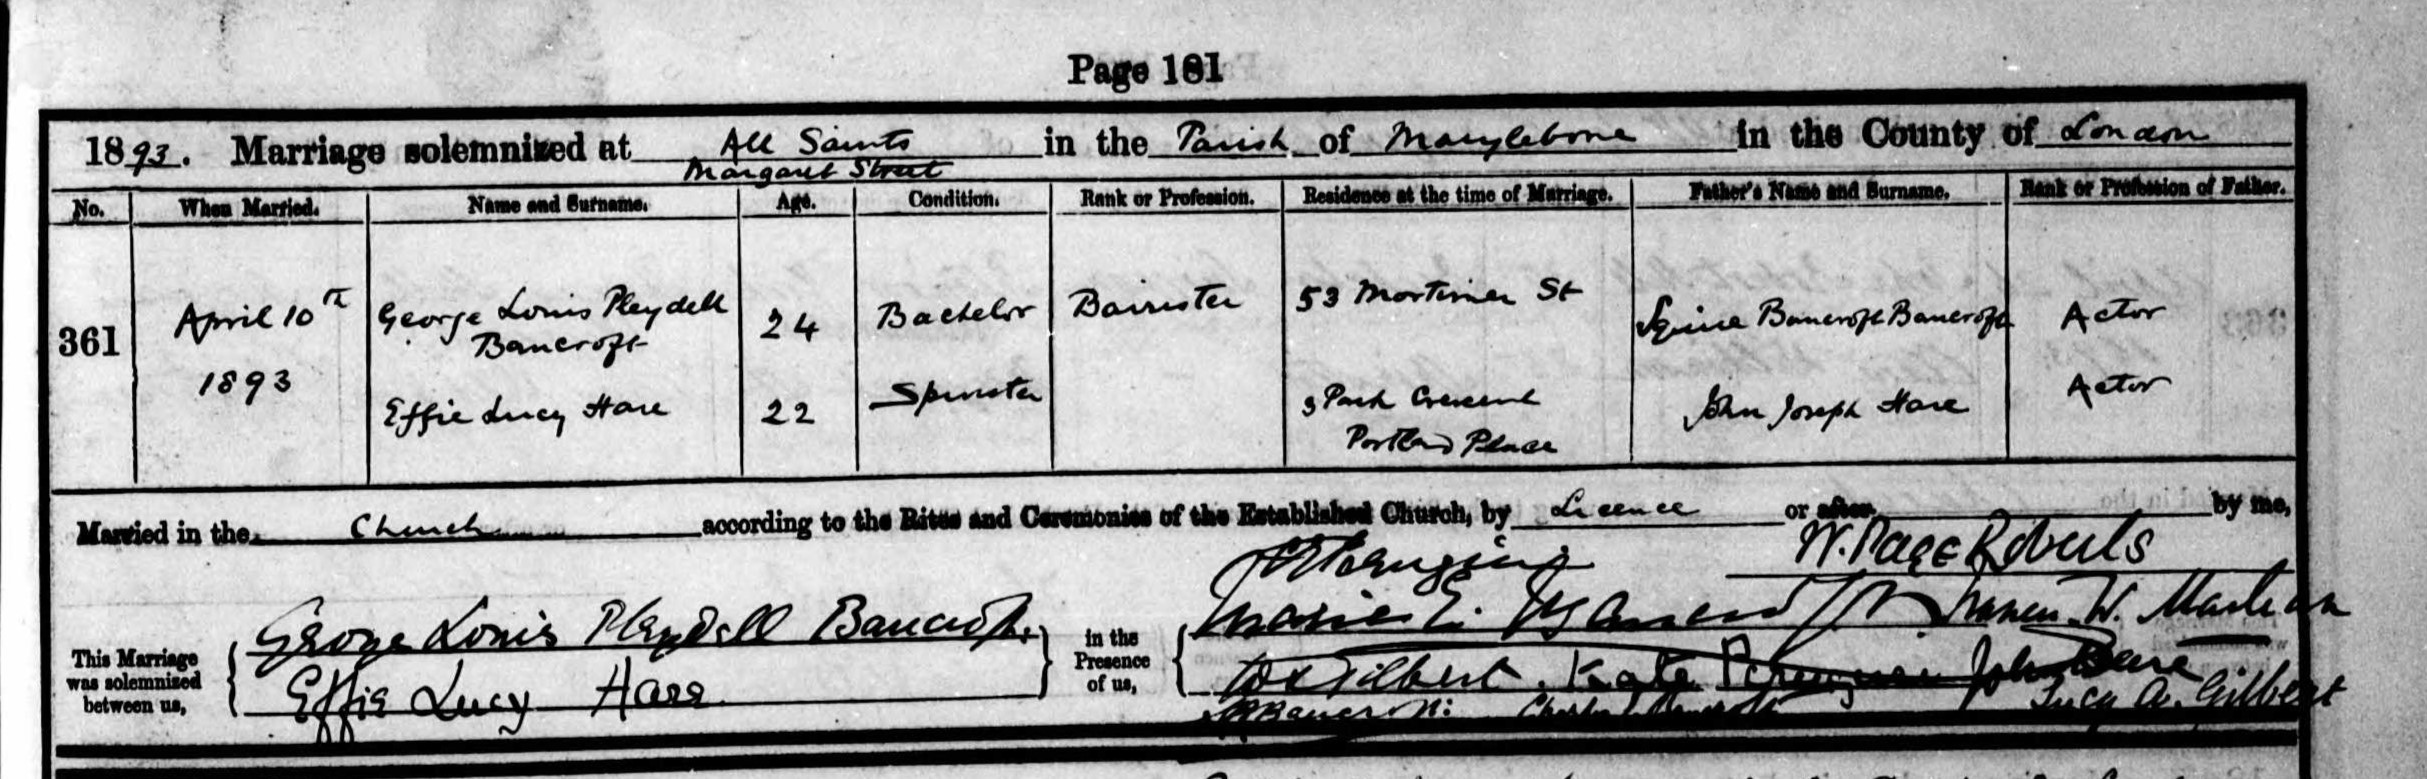 Page 181
1893. Marriage solemnized at All Saints in the Parish of Marylebone in the County of London
Margaret Street
No. When Married. Name and Surname. Age. Condition. Rank or Profession. Residence at the time of Marriage. Father's Name and Surname. Rank or Profession of Father.
361 April 10th 1893 George Louis Pleydell Bancroft 24 Bachelor Barrister 53 Mortimer St Squire Bancroft Bancroft Actor
Effie Lucy Hare 22 Spinster 3 Park Crescent Portland Place John Joseph Hare Actor
Married in the Church according to the Rites and Ceremonies of the Established Church, by Licence or after by me,
W. Page Roberts
This Marriage was solemnized between us, George Louis Pleydell Bancroft
Effie Lucy Hare
in the Presence of us, Marie E. Bancroft
W S Gilbert. Kate John Hare
Bancroft Lucy A. Gilbert